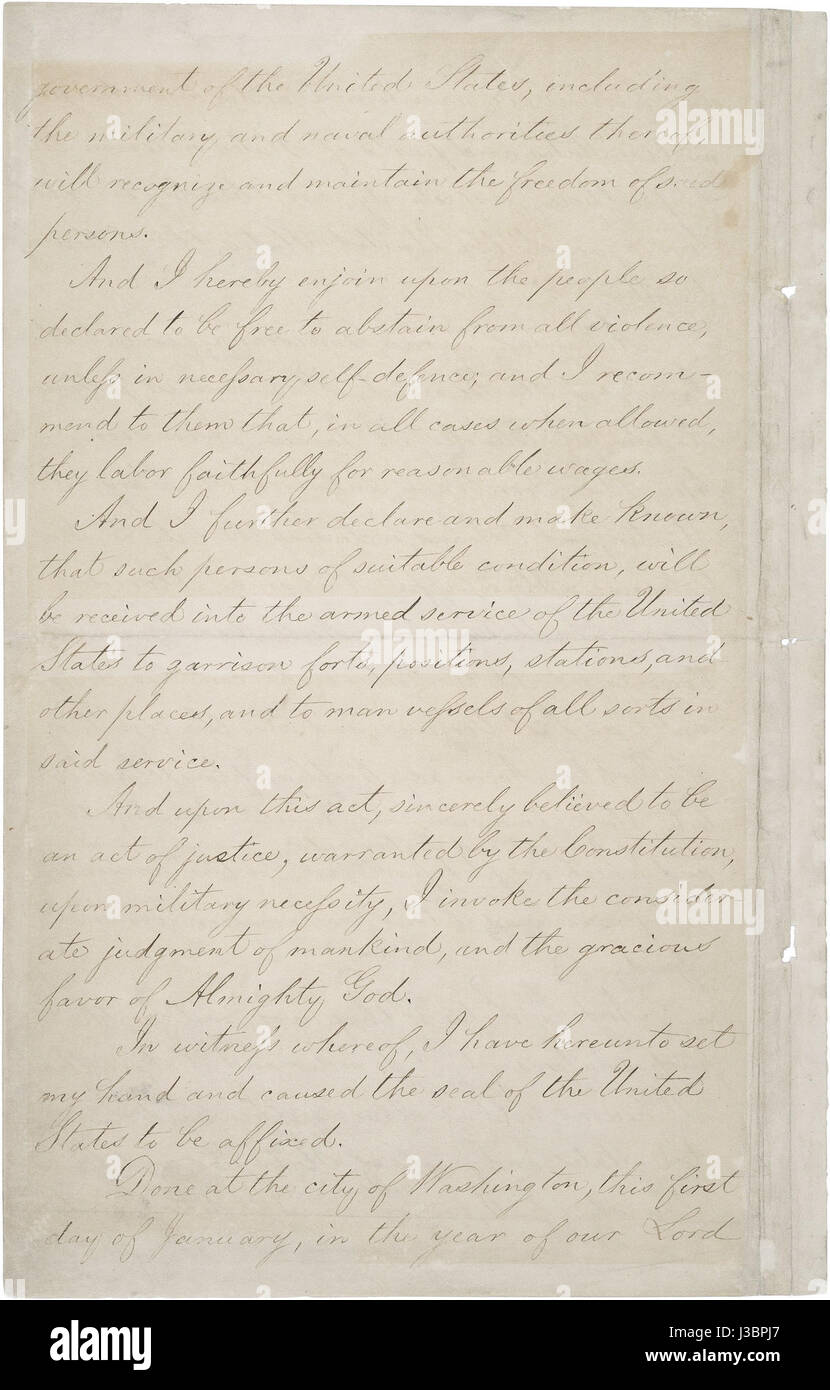 government of the United States, including
the military and naval authorities thereof,
will recognize and maintain the freedom of said
persons.
And I hereby enjoin upon the people so
declared to be free to abstain from all violence,
unless in necessary self-defence; and I recom-
mend to them that, in all cases when allowed,
they labor faithfully for reasonable wages.
And I further declare and make known,
that such persons of suitable condition, will
be received into the armed service of the United
States to garrison forts, positions, stations, and
other places, and to man vessels of all sorts in
said service.
And upon this act, sincerely believed to be
an act of justice, warranted by the Constitution,
upon military necessity, I invoke the consider-
ate judgment of mankind, and the gracious
favor of Almighty God.
In witness whereof, I have hereunto set
my hand and caused the seal of the United
States to be affixed.
Done at the city of Washington, this first
day of January, in the year of our Lord
alamy
Image ID: J3BPJ7
www.alamy.com